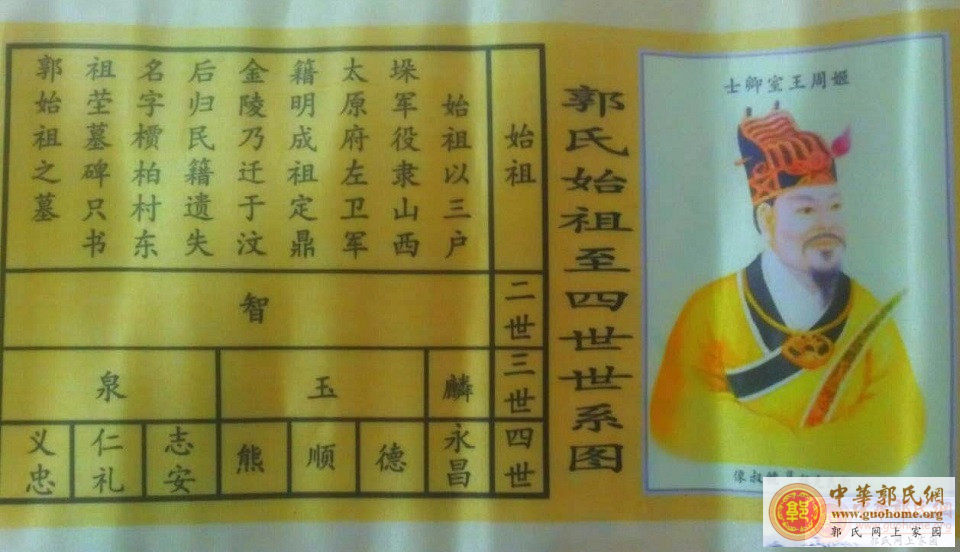 姬周王室卿士
叔像
郭氏始祖至四世世系图
始祖
始祖以三户
垛军役隶山西
太原府左卫军
籍明成祖定鼎
金陵乃迁于汶
后归民籍遗失
名字槚柏村东
祖茔墓碑只书
郭始祖之墓
二世
智
三世
麟
玉
泉
四世
永昌
德
顺
熊
志安
仁礼
义忠
中華郭氏網
www.guohome.org
郭氏网上家园